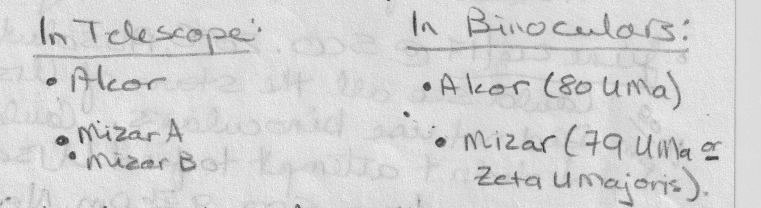 In Telescope:
• Alcor
• Mizar A
• Mizar B
In Binoculars:
• Alcor (80 UMa)
• Mizar (79 UMa or
Zeta UMajoris).